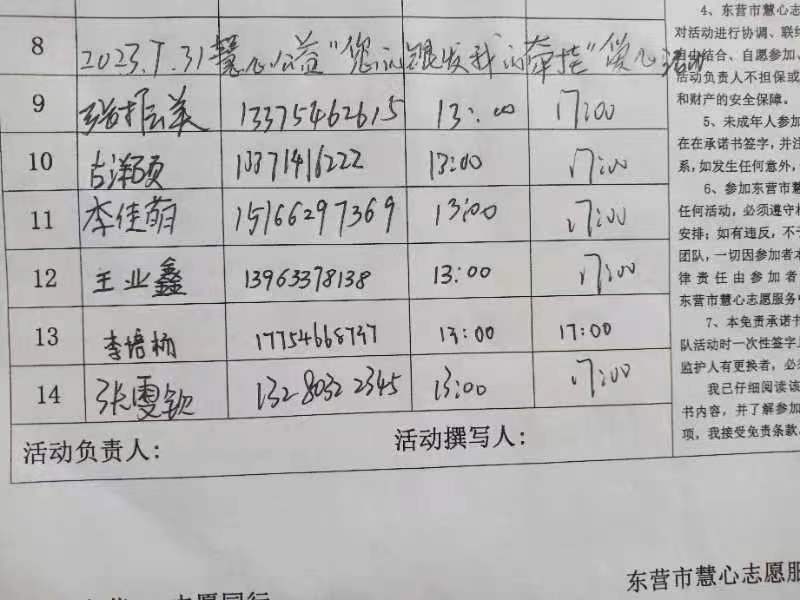 8 2023.7.31慧心公益"您的银发我的牵挂"爱心活动
9 13375462615 13:00 17:00
10 13371416222 13:00 17:00
11 李佳萌 15166297369 13:00 17:00
12 王业鑫 13963378138 13:00 17:00
13 李培杨 17754668737 13:00 17:00
14 张雯钦 13280322345 13:00 17:00
活动负责人: 活动撰写人:
4、东营市慧心志
对活动进行协调、联络
自由结合、自愿参加、
活动负责人不担保或
和财产的安全保障。
5、未成年人参加
在在承诺书签字,并注
系,如发生任何意外,
6、参加东营市慧
任何活动,必须遵守
安排;如有违反,不
团队,一切因参加者本
律责任由参加者
东营市慧心志愿服务
7、本免责承诺书
队活动时一次性签字
监护人有更换者,必
我已仔细阅读该
书内容,并了解参加
项,我接受免责条款
东营市慧心志愿服
志愿同行